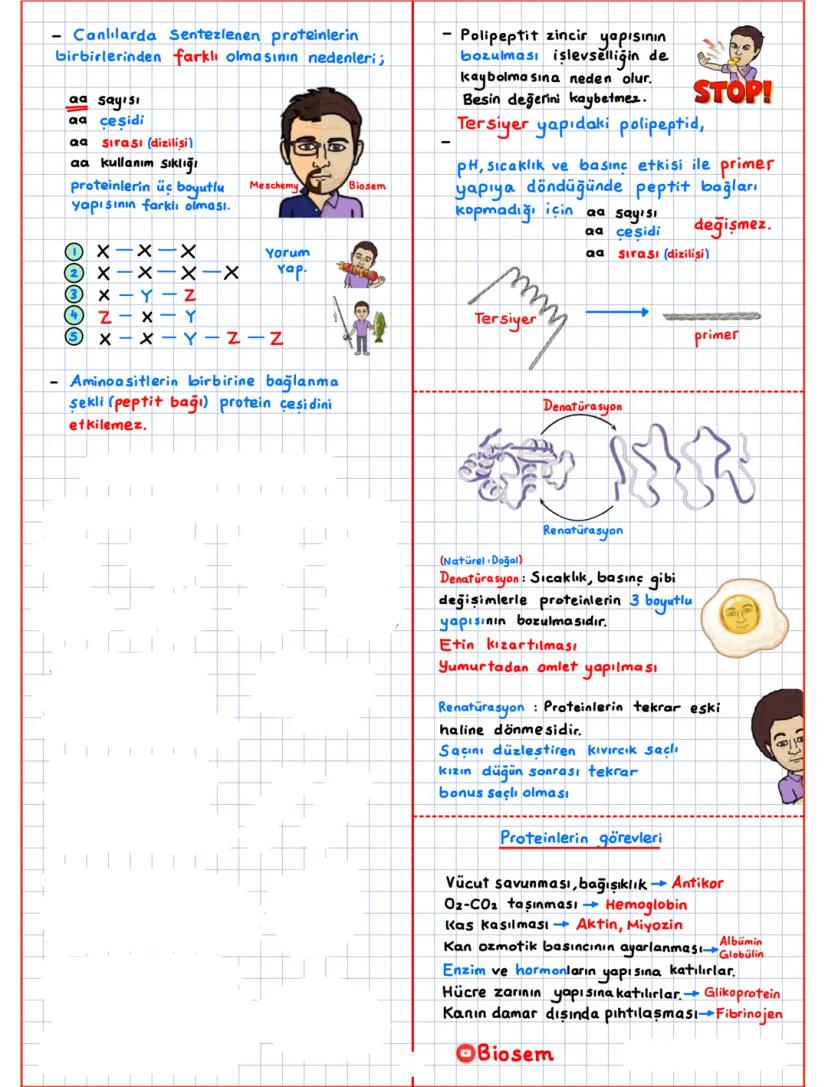 - Canlılarda sentezlenen proteinlerin
birbirlerinden farklı olmasının nedenleri;
aa sayısı
aa çeşidi
aa sırası (dizilişi)
aa kullanım sıklığı
proteinlerin üç boyutlu
yapısının farklı olması.
Meschemy Biosem
1 X - X - X
2 X - X - X - X
3 X - Y - Z
4 Z - X - Y
5 X - X - Y - Z - Z
Yorum
Yap.
- Aminoasitlerin birbirine bağlanma
şekli (peptit bağı) protein çeşidini
etkilemez.
- Polipeptit zincir yapısının
bozulması işlevselliğin de
kaybolmasına neden olur.
Besin değerini kaybetmez.
STOP!
Tersiyer yapıdaki polipeptid,
-
pH, sıcaklık ve basınç etkisi ile primer
yapıya döndüğünde peptit bağları
kopmadığı için aa sayısı
aa çeşidi
aa sırası (dizilişi)
değişmez.
Tersiyer
primer
Denatürasyon
Renatürasyon
(Natürel:Doğal)
Denatürasyon: Sıcaklık, basınç gibi
değişimlerle proteinlerin 3 boyutlu
yapısının bozulmasıdır.
Etin kızartılması
Yumurtadan omlet yapılması
Renatürasyon : Proteinlerin tekrar eski
haline dönmesidir.
Saçını düzleştiren kıvırcık saçlı
kızın düğün sonrası tekrar
bonus saçlı olması
Proteinlerin görevleri
Vücut savunması, bağışıklık → Antikor
O₂-CO₂ taşınması → Hemoglobin
Kas kasılması → Aktin, Miyozin
Kan ozmotik basıncının ayarlanması → Albümin
Globülin
Enzim ve hormonların yapısına katılırlar.
Hücre zarının yapısına katılırlar. → Glikoprotein
Kanın damar dışında pıhtılaşması → Fibrinojen
Biosem